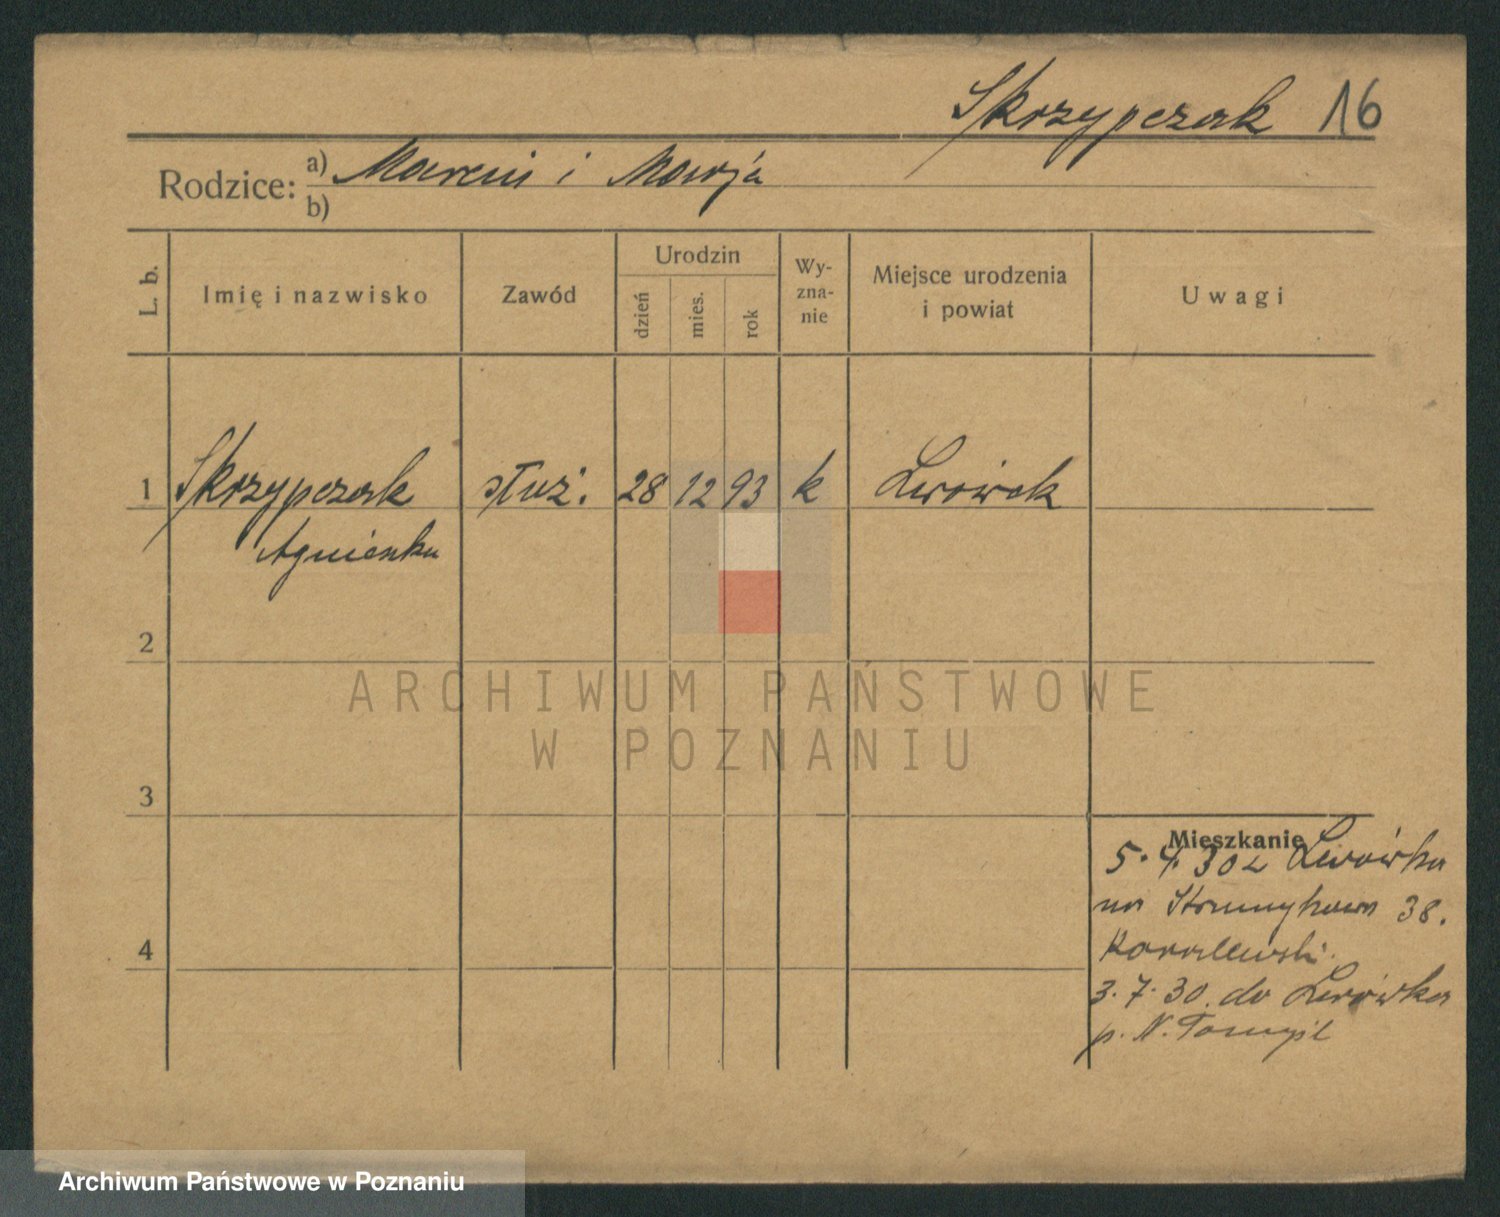 Skrzypczak 16
Rodzice: a) Marcin i Marja
b)
L. b.
Imię i nazwisko
Zawód
Urodzin
dzień
mies.
rok
Wy-
zna-
nie
Miejsce urodzenia
i powiat
Uwagi
1 Skrzypczak służ. 28 12 93 k Lwówek
Agnieszka
2
3
4
Mieszkanie
5.4.30 z Lwówka
na 38.
3.7.30. do Lwówka
p. N. Tomyśl
ARCHIWUM PAŃSTWOWE
W POZNANIU
Archiwum Państwowe w Poznaniu